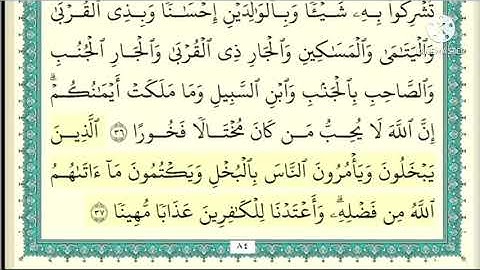 تُشْرِكُوا۟ بِهِۦ شَيْـًٔا وَبِٱلْوَٰلِدَيْنِ إِحْسَٰنًا وَبِذِى ٱلْقُرْبَىٰ
وَٱلْيَتَٰمَىٰ وَٱلْمَسَٰكِينِ وَٱلْجَارِ ذِى ٱلْقُرْبَىٰ وَٱلْجَارِ ٱلْجُنُبِ
وَٱلصَّاحِبِ بِٱلْجَنۢبِ وَٱبْنِ ٱلسَّبِيلِ وَمَا مَلَكَتْ أَيْمَٰنُكُمْ ۗ
إِنَّ ٱللَّهَ لَا يُحِبُّ مَن كَانَ مُخْتَالًا فَخُورًا ٣٦ ٱلَّذِينَ
يَبْخَلُونَ وَيَأْمُرُونَ ٱلنَّاسَ بِٱلْبُخْلِ وَيَكْتُمُونَ مَآ ءَاتَىٰهُمُ
ٱللَّهُ مِن فَضْلِهِۦ ۗ وَأَعْتَدْنَا لِلْكَٰفِرِينَ عَذَابًا مُّهِينًا ٣٧
٨٤